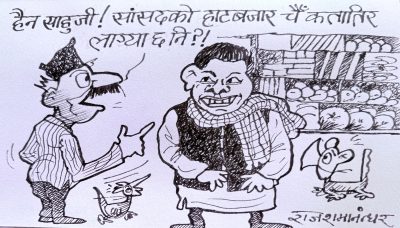 हैन साहुजी! सांसदको हाटबजार चैँ कतातिर
लाग्या छ नि?!
राजशमानन्धर